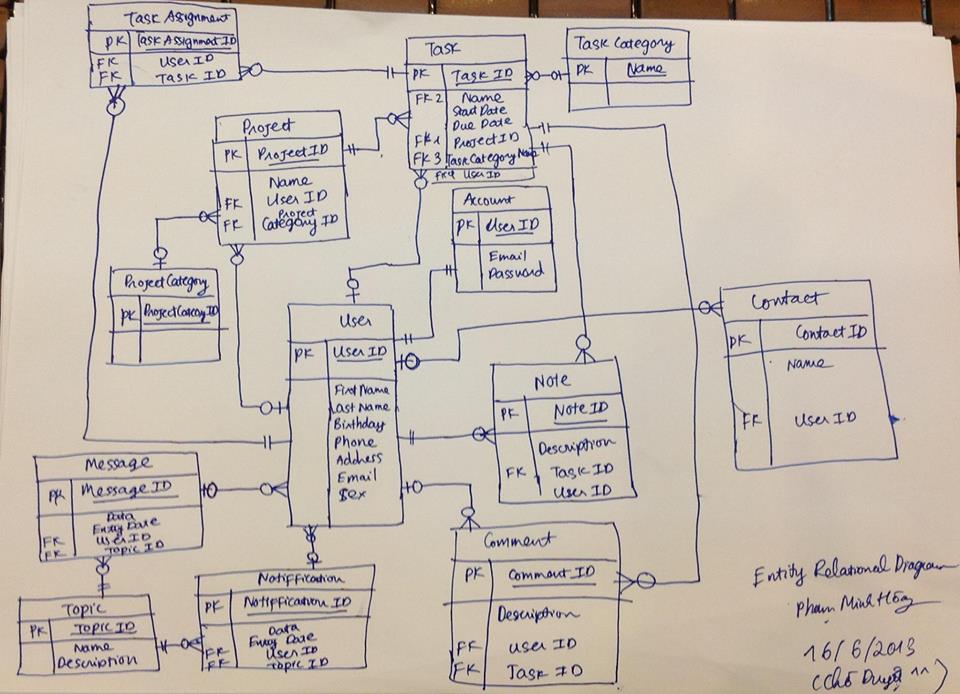 Task Assignment
PK Task Assignment ID
FK User ID
FK Task ID
Task
PK Task ID
FK 2 Name
Start Date
Due Date
FK 1 Project ID
FK 3 Task Category Name
FK4 User ID
Task Category
PK Name
Project
PK Project ID
Name
FK User ID
FK Project Category ID
Account
PK User ID
Email
Password
Project Category
PK Project Category ID
User
PK User ID
First Name
Last Name
Birthday
Phone
Address
Email
Sex
Contact
PK Contact ID
Name
FK User ID
Note
PK Note ID
Description
FK Task ID
User ID
Message
PK Message ID
Data
Entry Date
FK User ID
FK Topic ID
Comment
PK Comment ID
Description
FK User ID
FK Task ID
Notiffication
PK Notiffication ID
Data
Entry Date
FK User ID
FK Topic ID
Topic
PK Topic ID
Name
Description
Entity Relational Diagram
Phạm Minh
16/6/2013
(Chờ Duyệt ^^)